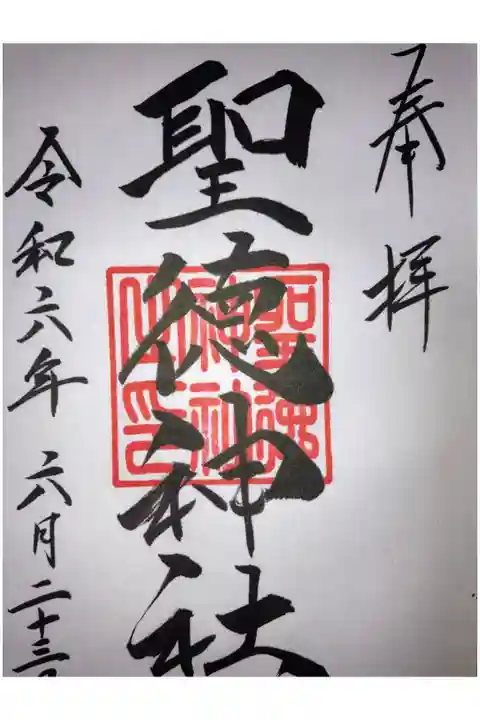 奉拝
聖徳神社
聖徳
神社
之印
令和六年六月二十三日